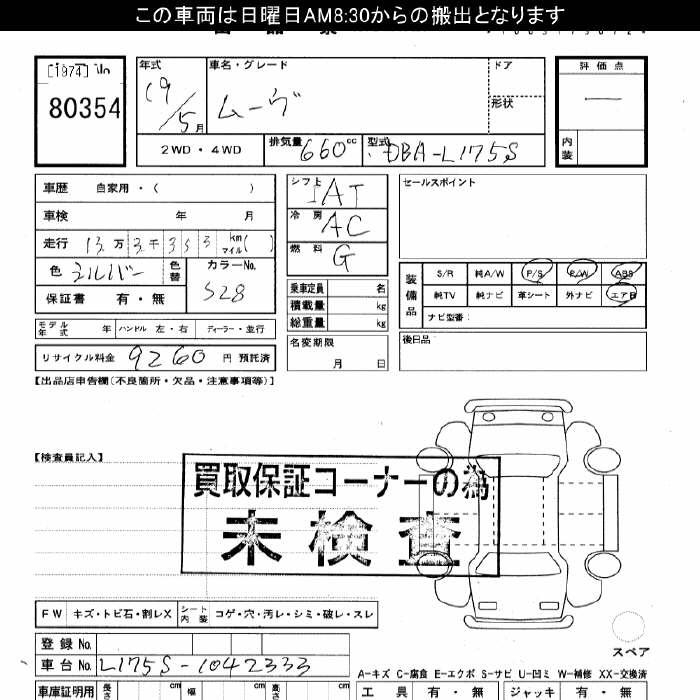 この車両は日曜日AM8:30からの搬出となります
[1974]
80354
年式 19/5月
車名・グレード ムーヴ
ドア
形状
評価点 —
内装
2WD・4WD
排気量 660cc
型式 DBA-L175S
車歴 自家用・( )
車検 年 月
走行 13万3千353km マイル( )
色 シルバー 色替
カラーNo. S28
保証書 有・無
シフト IAT
冷房 AC
燃料 G
乗車定員 名
積載量 kg
総重量 kg
セールスポイント
装備品
S/R 純A/W P/S P/W ABS
純TV 純ナビ 革シート 外ナビ エアB
ナビ型番:
モデル年式 年 ハンドル 左・右 ディーラー・並行
名変期限 月 日
後日品
リサイクル料金 9260 円 預託済
【出品店申告欄(不良箇所・欠品・注意事項等)】
【検査員記入】
買取保証コーナーの為
未検査
FW キズ・トビ石・割レX シート内装 コゲ・穴・汚レ・シミ・破レ・スレ
スペア
登録No.
車台No. L175S-1042333
A-キズ C-腐食 E-エクボ S-サビ U-凹ミ W-補修 XX-交換済
車庫証明用 長さ cm 幅 cm 高さ cm
工具 有・無 ジャッキ 有・無